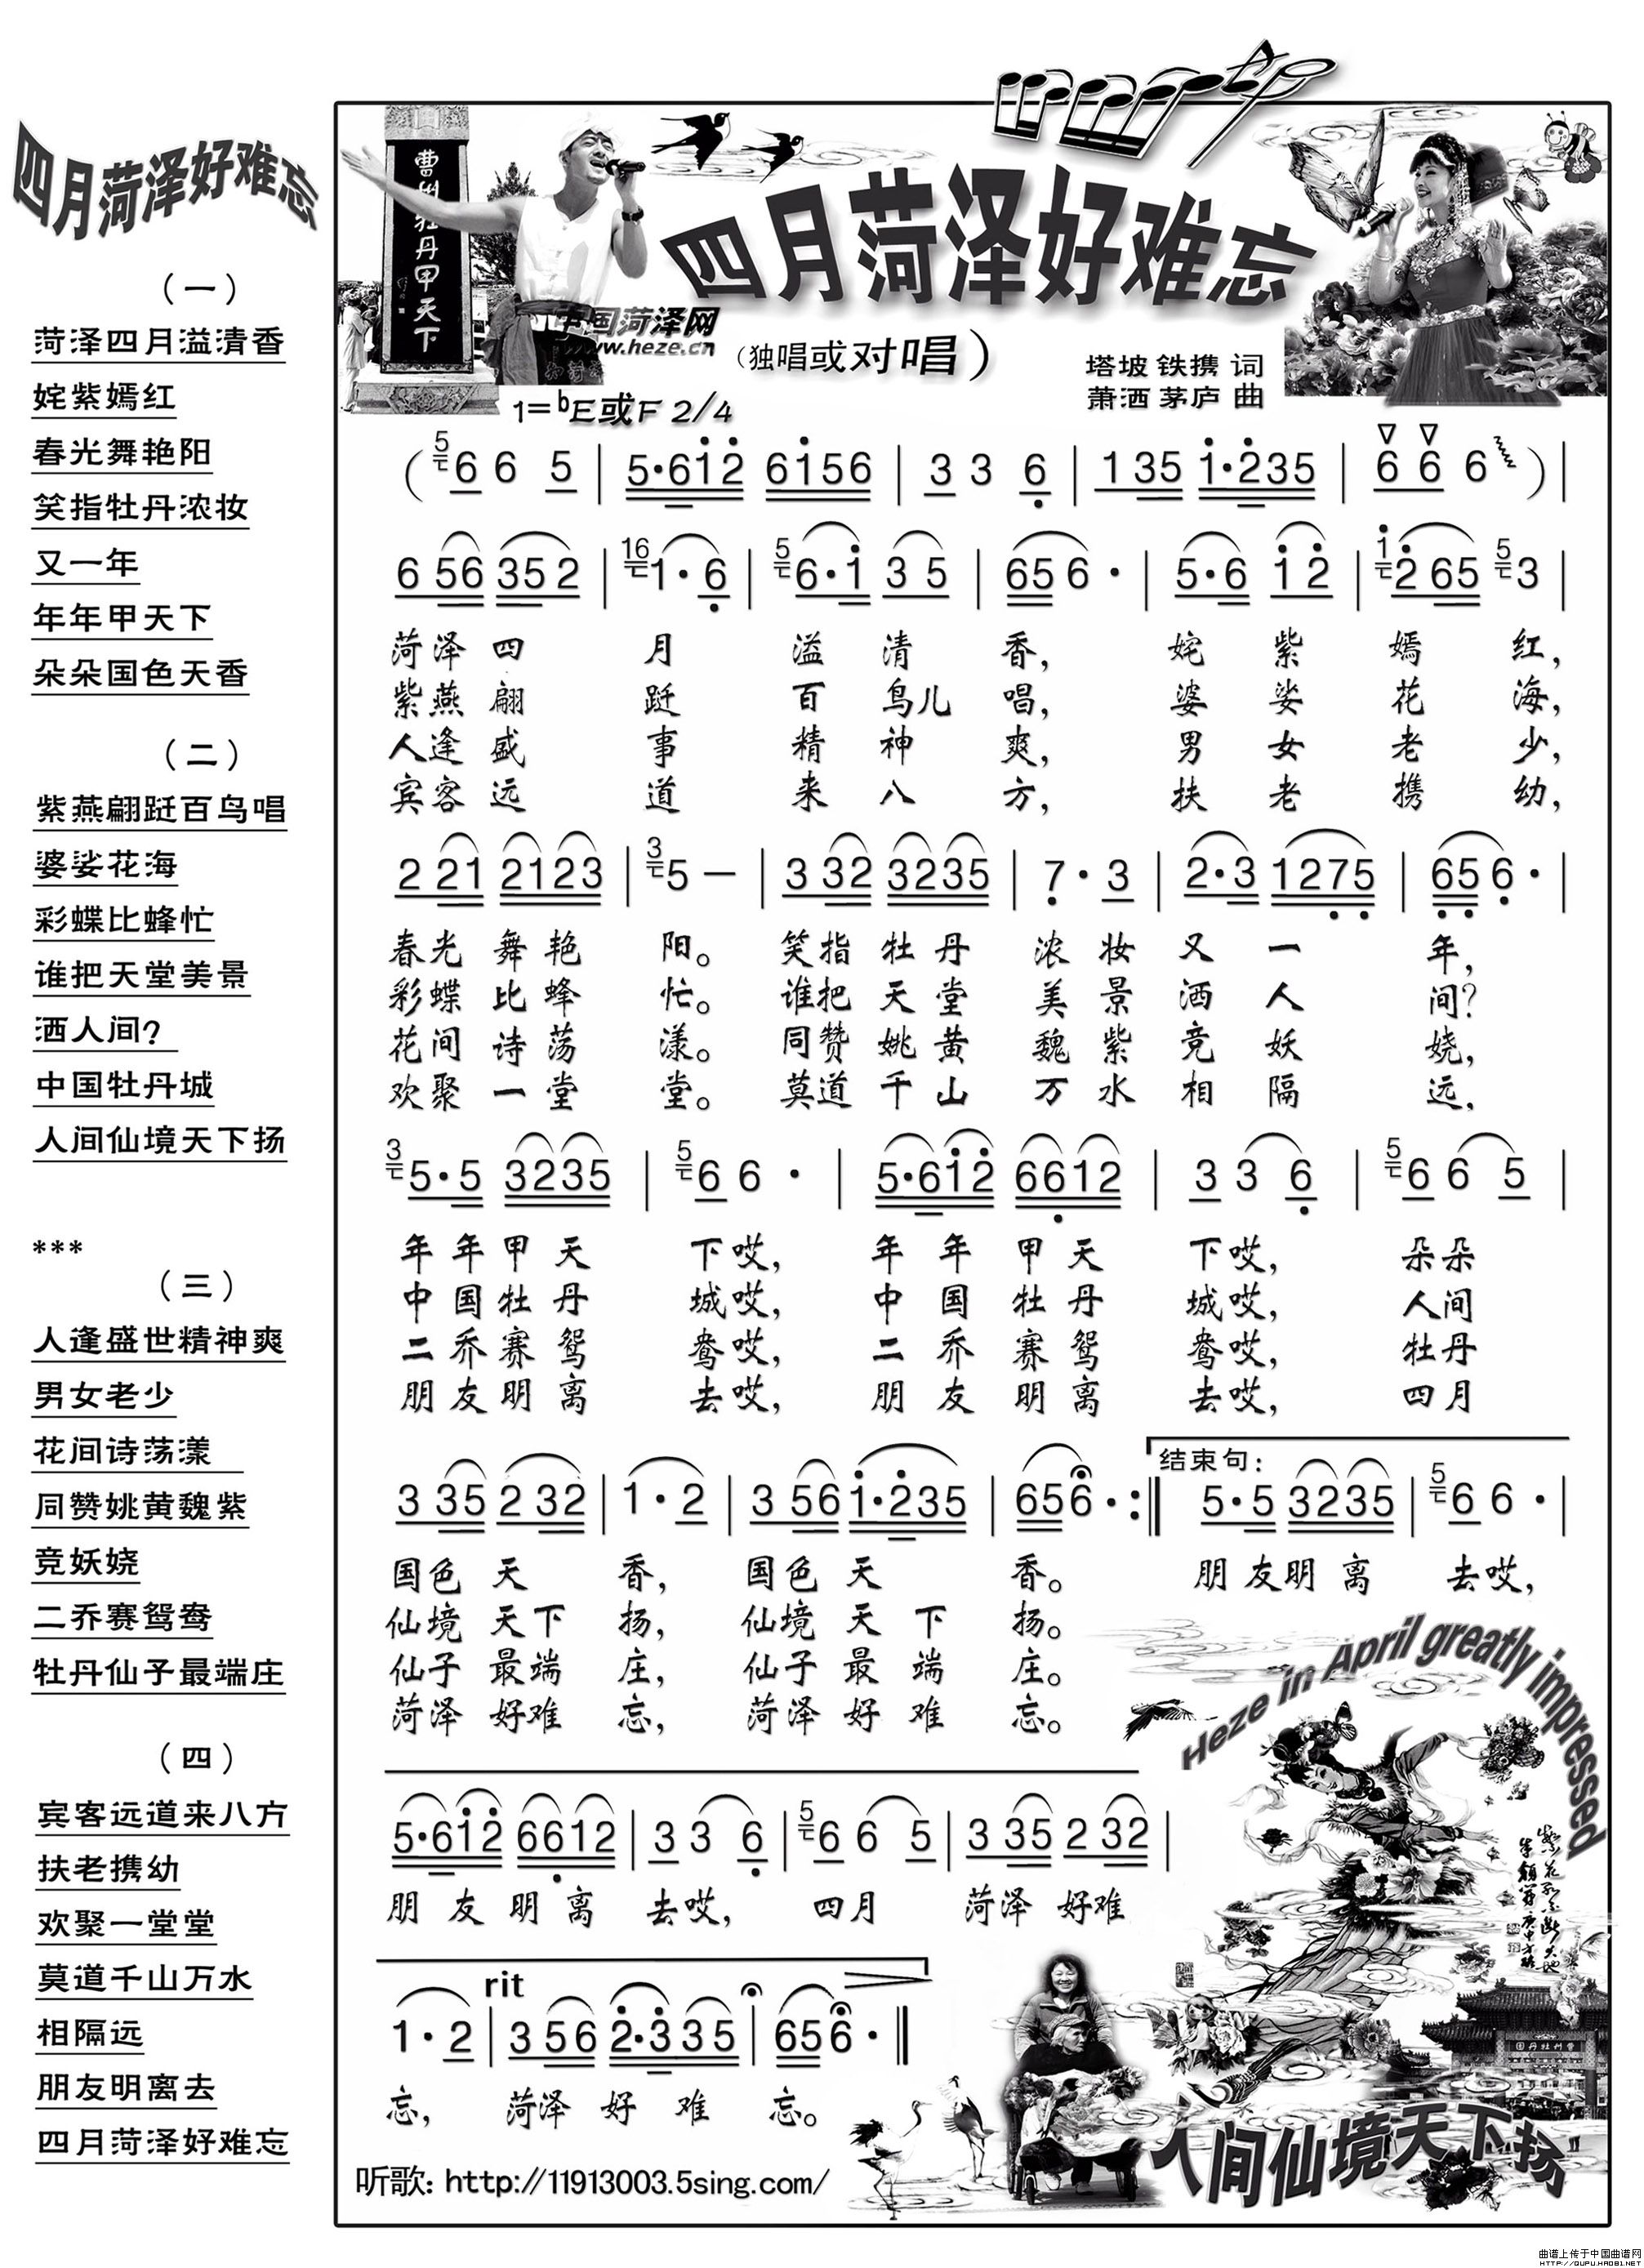 四月菏泽好难忘
（一）
菏泽四月溢清香
姹紫嫣红
春光舞艳阳
笑指牡丹浓妆
又一年
年年甲天下
朵朵国色天香
（二）
紫燕翩跹百鸟唱
婆娑花海
彩蝶比蜂忙
谁把天堂美景
洒人间？
中国牡丹城
人间仙境天下扬
***
（三）
人逢盛世精神爽
男女老少
花间诗荡漾
同赞姚黄魏紫
竞妖娆
二乔赛鸳鸯
牡丹仙子最端庄
（四）
宾客远道来八方
扶老携幼
欢聚一堂堂
莫道千山万水
相隔远
朋友明离去
四月菏泽好难忘
曹州牡丹甲天下
中国菏泽网
www.heze.cn
四月菏泽好难忘
（独唱或对唱）
塔坡 铁携 词
萧洒 茅庐 曲
1=ᵇE或F 2/4
（5 6 6 5 | 5·612 6156 | 3 3 6 | 1 35 1·235 | 6 6 6 ）|
6 56 352 | 16 1· 6 | 5 6·1 3 5 | 65 6 · | 5·6 1 2 | 1 2 65 5 3 |
菏泽 四 月 溢 清 香， 姹 紫 嫣 红，
紫燕 翩 跹 百 鸟儿 唱， 婆 娑 花 海，
人逢 盛 事 精 神 爽， 男 女 老 少，
宾客 远 道 来 八 方， 扶 老 携 幼，
2 21 2123 | 3 5 — | 3 32 3235 | 7 · 3 | 2·3 1275 | 65 6 · |
春光 舞 艳 阳。 笑指 牡 丹 浓 妆 又 一 年，
彩蝶 比 蜂 忙。 谁把 天 堂 美 景 洒 人 间？
花间 诗 荡 漾。 同赞 姚 黄 魏 紫 竞 妖 娆，
欢聚 一 堂 堂。 莫道 千 山 万 水 相 隔 远，
3 5·5 3235 | 5 6 6 · | 5·612 6612 | 3 3 6 | 5 6 6 5 |
年 年 甲 天 下哎， 年 年 甲 天 下哎， 朵朵
中 国 牡 丹 城哎， 中 国 牡 丹 城哎， 人间
二 乔 赛 鸳 鸯哎， 二 乔 赛 鸳 鸯哎， 牡丹
朋 友 明 离 去哎， 朋 友 明 离 去哎， 四月
结束句：
3 35 2 32 | 1 · 2 | 3 56 1·235 | 656 · :‖ 5·5 3235 | 5 6 6 · |
国色 天 香， 国色 天 香。 朋 友明 离 去哎，
仙境 天下 扬， 仙境 天 下 扬。
仙子 最端 庄， 仙子 最 端 庄。
菏泽 好难 忘， 菏泽 好 难 忘。
Heze in April greatly impressed
5·612 6612 | 3 3 6 | 5 6 6 5 | 3 35 2 32 |
朋 友 明 离 去哎， 四月 菏泽 好难
rit
1 · 2 | 3 56 2·3 35 | 656 · ‖
忘， 菏泽 好 难 忘。
人间仙境天下扬
听歌：http://11913003.5sing.com/
曲谱上传于中国曲谱网
HTTP://QUPU.HAOBI.NET